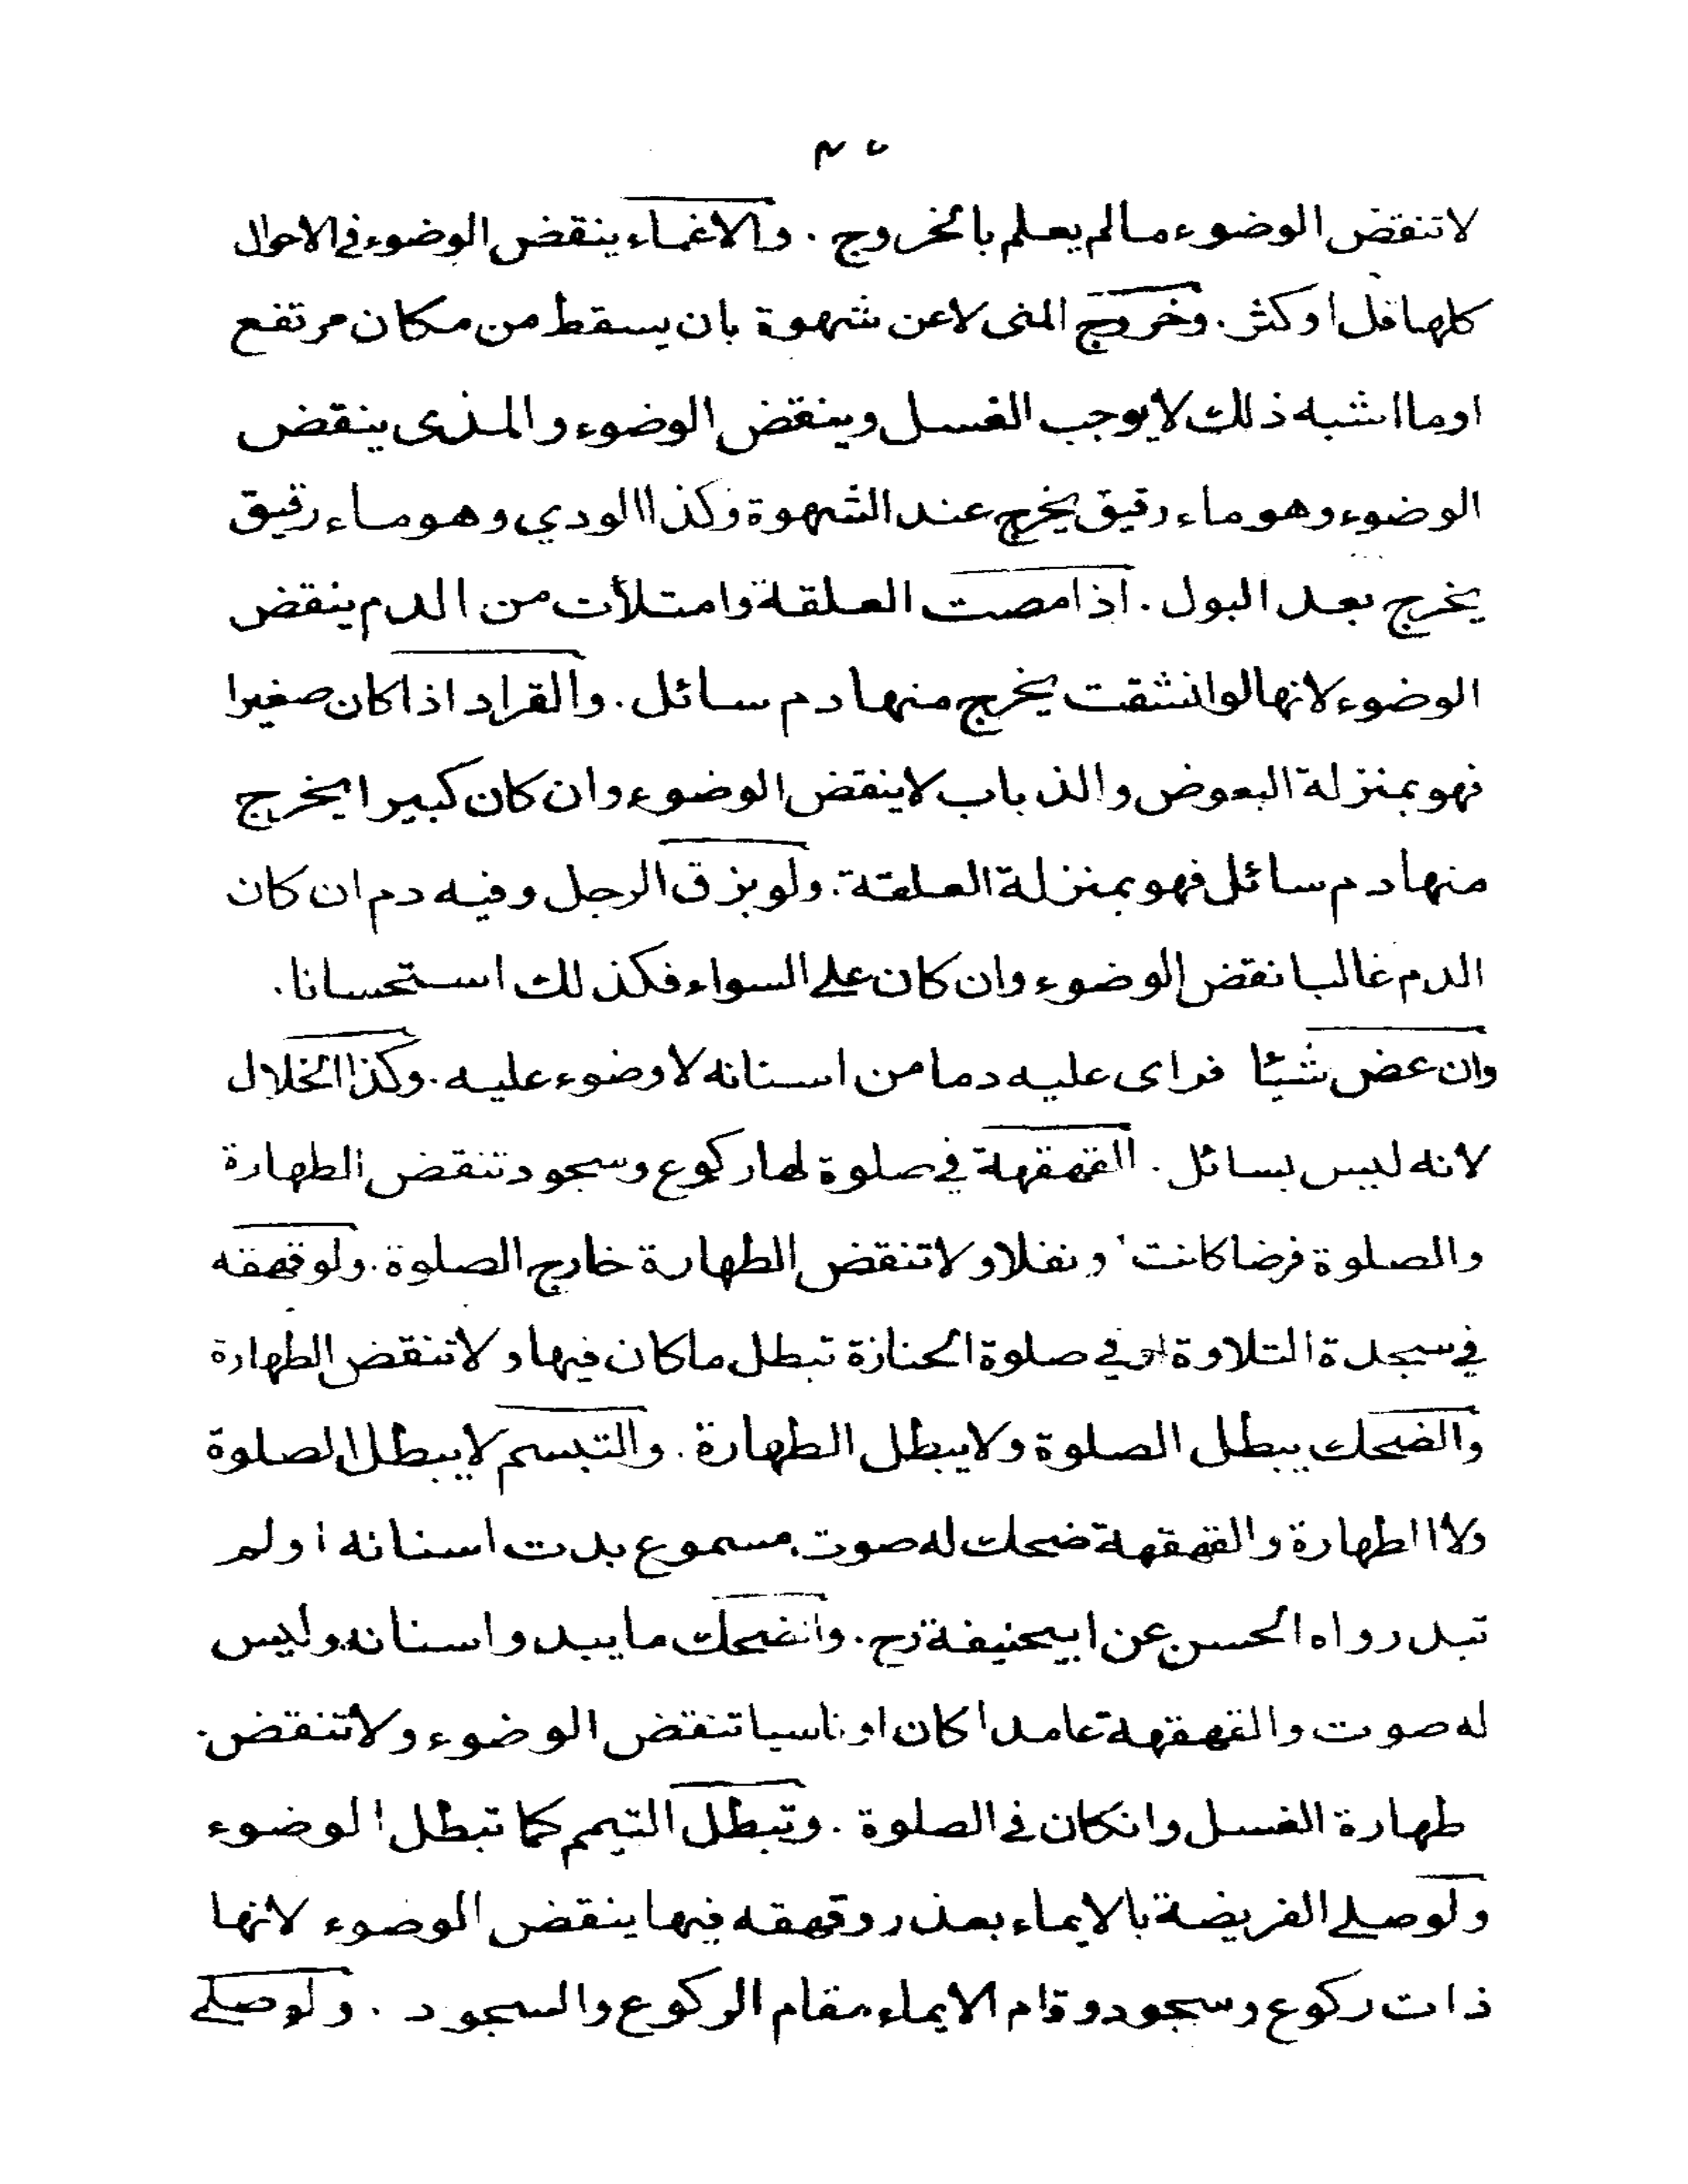 لا تنقض الوضوء ما لم يعلم بالخروج . والاغماء ينقض الوضوء في الاحوال
كلها قل او كثر . وخروج المنى لا عن شهوة بان يسقط من مكان مرتفع
او ما اشبه ذلك لا يوجب الغسل وينقض الوضوء والمذى ينقض
الوضوء وهو ماء رقيق يخرج عند الشهوة وكذا الودي وهو ماء رقيق
يخرج بعد البول . اذا مصت العلقة وامتلأت من الدم ينقض
الوضوء لانها لو انشقت يخرج منها دم سائل . والقراد اذا كان صغيرا
فهو بمنزلة البعوض والذباب لا ينقض الوضوء وان كان كبيرا يخرج
منها دم سائل فهو بمنزلة العلقة . ولو بزق الرجل وفيه دم ان كان
الدم غالبا نقض الوضوء وان كان على السواء فكذلك استحسانا .
وان عض شيئا فراى عليه دما من اسنانه لا وضوء عليه . وكذا الخلال
لانه ليس بسائل . القهقهة في صلوة لها ركوع وسجود تنقض الطهارة
والصلوة فرضا كانت او نفلا ولا تنقض الطهارة خارج الصلوة . ولو قهقه
في سجدة التلاوة او في صلوة الجنازة تبطل ما كان فيها ولا تنقض الطهارة
والضحك يبطل الصلوة ولا يبطل الطهارة . والتبسم لا يبطل الصلوة
ولا الطهارة والقهقهة ضحك له صوت مسموع بدت اسنانه او لم
تبد رواه الحسن عن ابيحنيفة رح . والضحك ما يبدو اسنانه وليس
له صوت والقهقهة عامدا كان او ناسيا تنقض الوضوء ولا تنقض
طهارة الغسل وانكان في الصلوة . وتبطل التيمم كما تبطل الوضوء
ولو صلى الفريضة بالايماء بعذر وقهقه فيها ينقض الوضوء لانها
ذات ركوع وسجود وقام الايماء مقام الركوع والسجود . ولو صلى